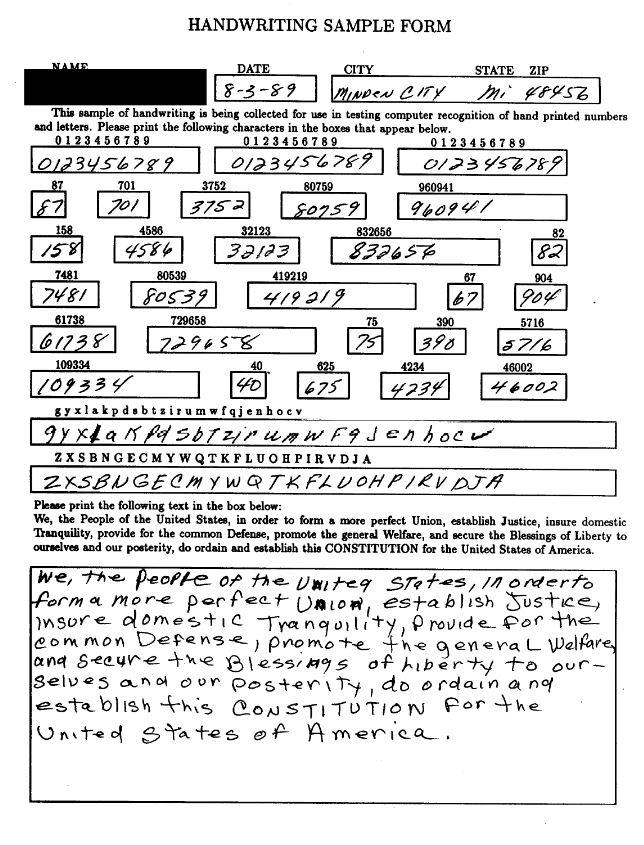 HANDWRITING SAMPLE FORM
NAME DATE CITY STATE ZIP
8-3-89 MINDEN CITY Mi 48456
This sample of handwriting is being collected for use in testing computer recognition of hand printed numbers
and letters. Please print the following characters in the boxes that appear below.
0 1 2 3 4 5 6 7 8 9 0 1 2 3 4 5 6 7 8 9 0 1 2 3 4 5 6 7 8 9
0123456789 0123456789 0123456789
87 701 3752 80759 960941
87 701 3752 80759 960941
158 4586 32123 832656 82
158 4586 32123 832656 82
7481 80539 419219 67 904
7481 80539 419219 67 904
61738 729658 75 390 5716
61738 729658 75 390 5716
109334 40 625 4234 46002
109334 40 675 4234 46002
g y x l a k p d s b t z i r u m w f q j e n h o c v
gyxlaKpdsbTzirumwFqJenhocv
Z X S B N G E C M Y W Q T K F L U O H P I R V D J A
ZXSBNGECMYWQTKFLUOHPIRVDJA
Please print the following text in the box below:
We, the People of the United States, in order to form a more perfect Union, establish Justice, insure domestic
Tranquility, provide for the common Defense, promote the general Welfare, and secure the Blessings of Liberty to
ourselves and our posterity, do ordain and establish this CONSTITUTION for the United States of America.
We, the People of the United States, in order to
form a more perfect Union, establish Justice,
insure domestic Tranquility, Provide for the
common Defense, promote the general Welfare,
and secure the Blessings of Liberty to our-
selves and our Posterity, do ordain and
establish this CONSTITUTION for the
United States of America.